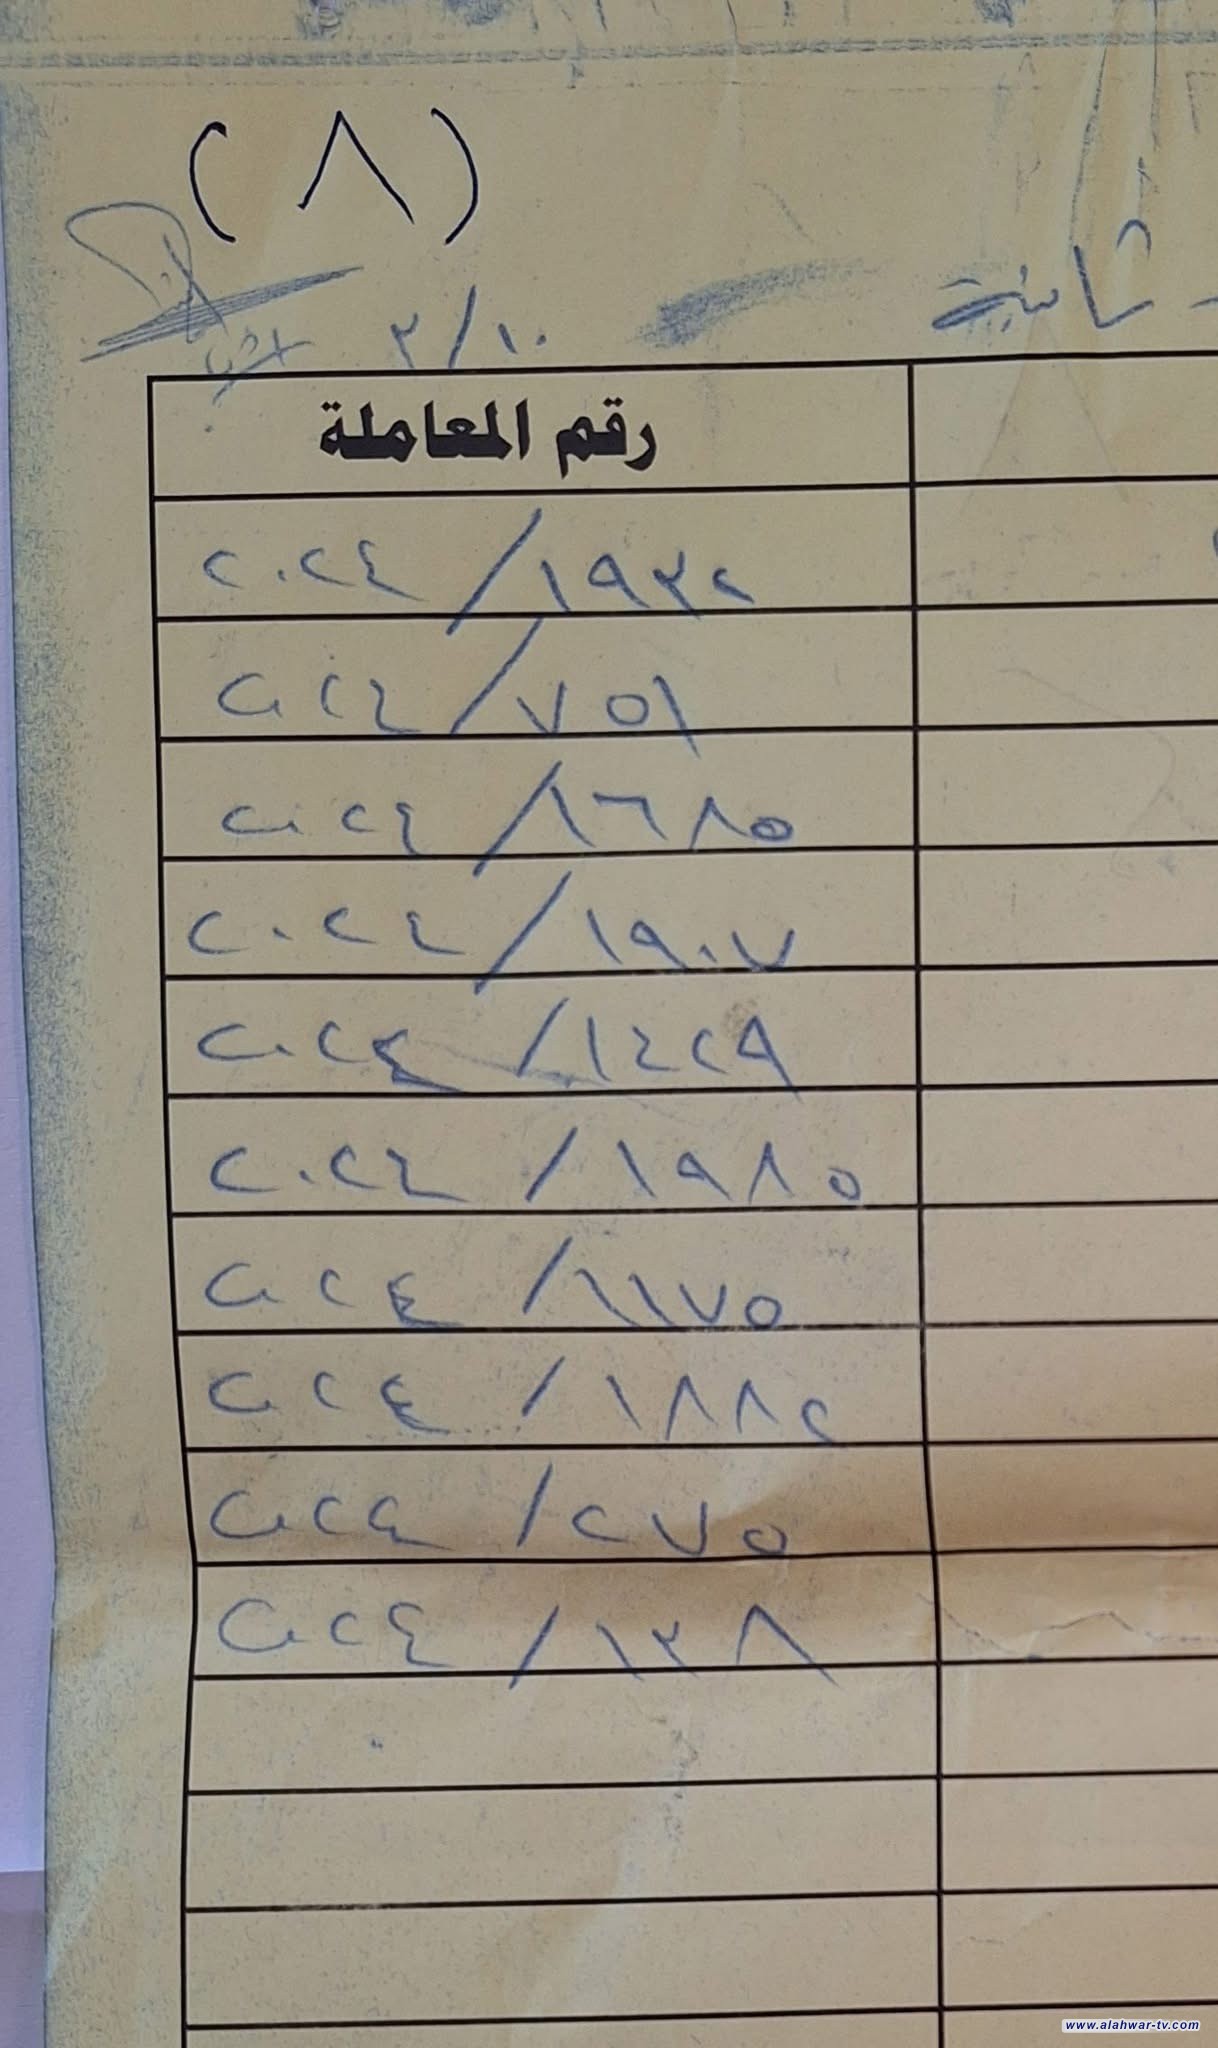 (٨)
ثانية
١٠/٣
رقم المعاملة
١٩٣٢/٢٠٢٤
٧٥١/٢٠٢٤
١٦٨٥/٢٠٢٤
١٩٠٧/٢٠٢٤
١٤٢٩/٢٠٢٤
١٩٨٥/٢٠٢٤
١١٧٥/٢٠٢٤
١٨٨٢/٢٠٢٤
٢٧٥/٢٠٢٤
١٣٨/٢٠٢٤
www.alahwar-tv.com